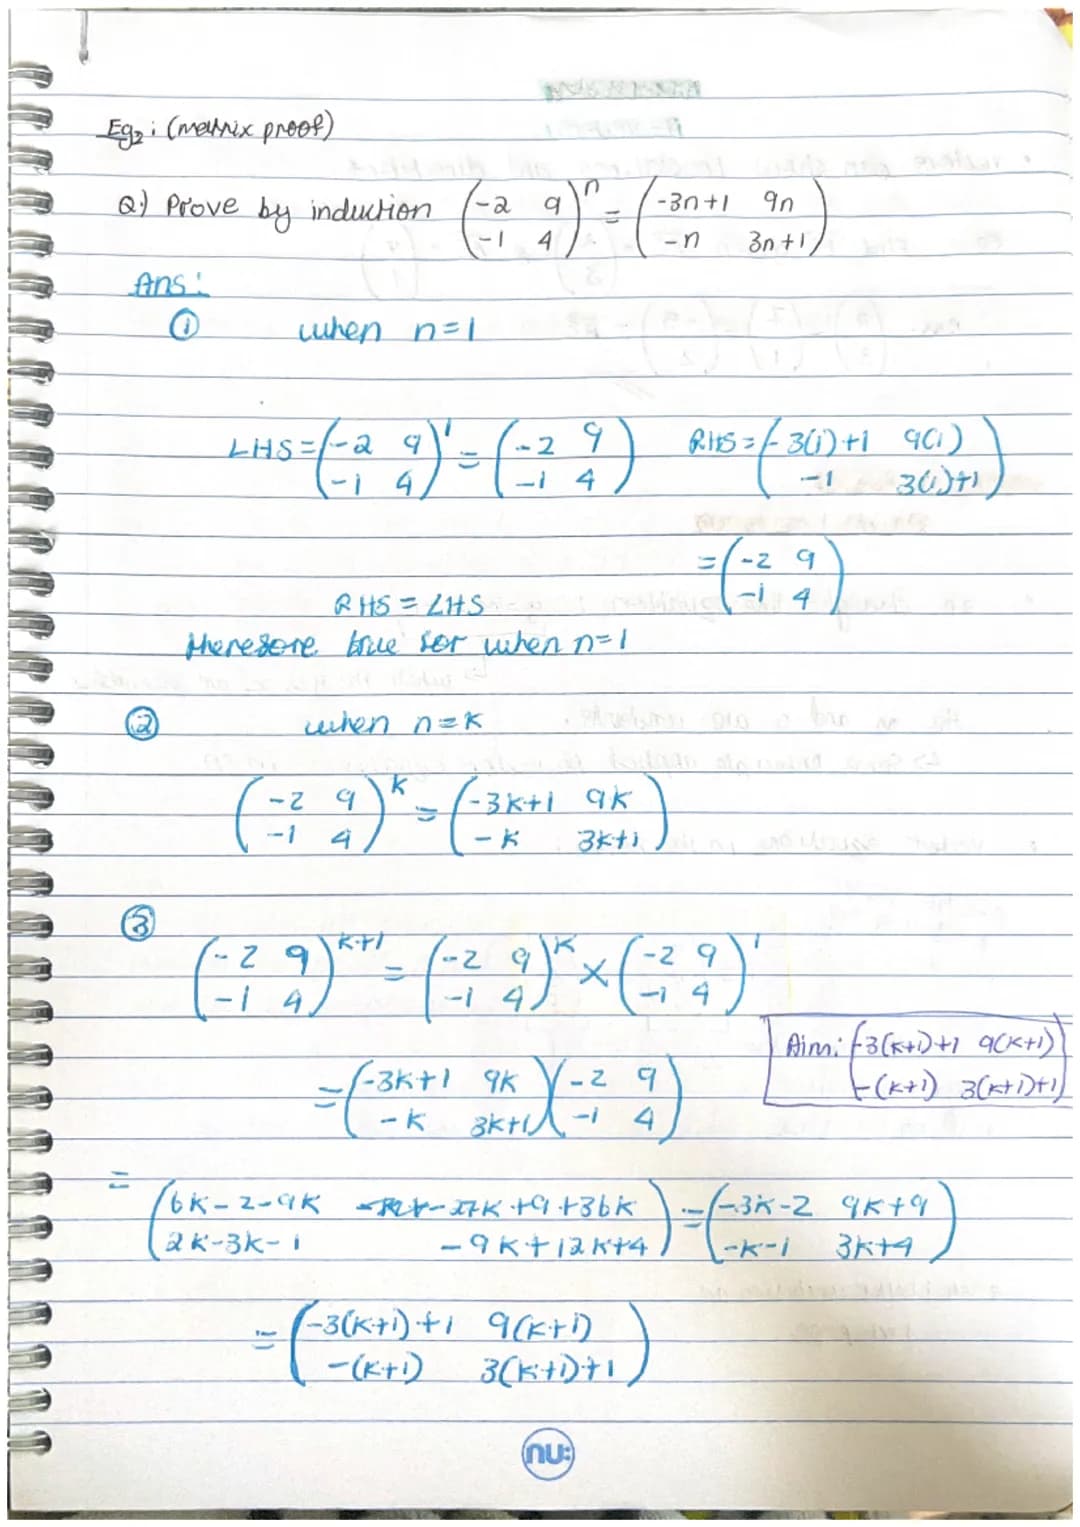 Eg2: (matrix proof)
Q:) Prove by induction (-2 9 / -1 4)^n = (-3n+1 9n / -n 3n+1)
Ans:
① when n=1
LHS = (-2 9 / -1 4)^1 = (-2 9 / -1 4) RHS = (-3(1)+1 9(1) / -1 3(1)+1)
= (-2 9 / -1 4)
RHS = LHS
therefore true for when n=1
② when n=k
(-2 9 / -1 4)^k = (-3k+1 9k / -k 3k+1)
③
(-2 9 / -1 4)^k+1 = (-2 9 / -1 4)^k × (-2 9 / -1 4)^1
Aim: (-3(k+1)+1 9(k+1) / -(k+1) 3(k+1)+1)
= (-3k+1 9k / -k 3k+1)(-2 9 / -1 4)
= (6k-2-9k -27k+9+36k / 2k-3k-1 -9k+12k+4) = (-3k-2 9k+9 / -k-1 3k+4)
= (-3(k+1)+1 9(k+1) / -(k+1) 3(k+1)+1)
nu: